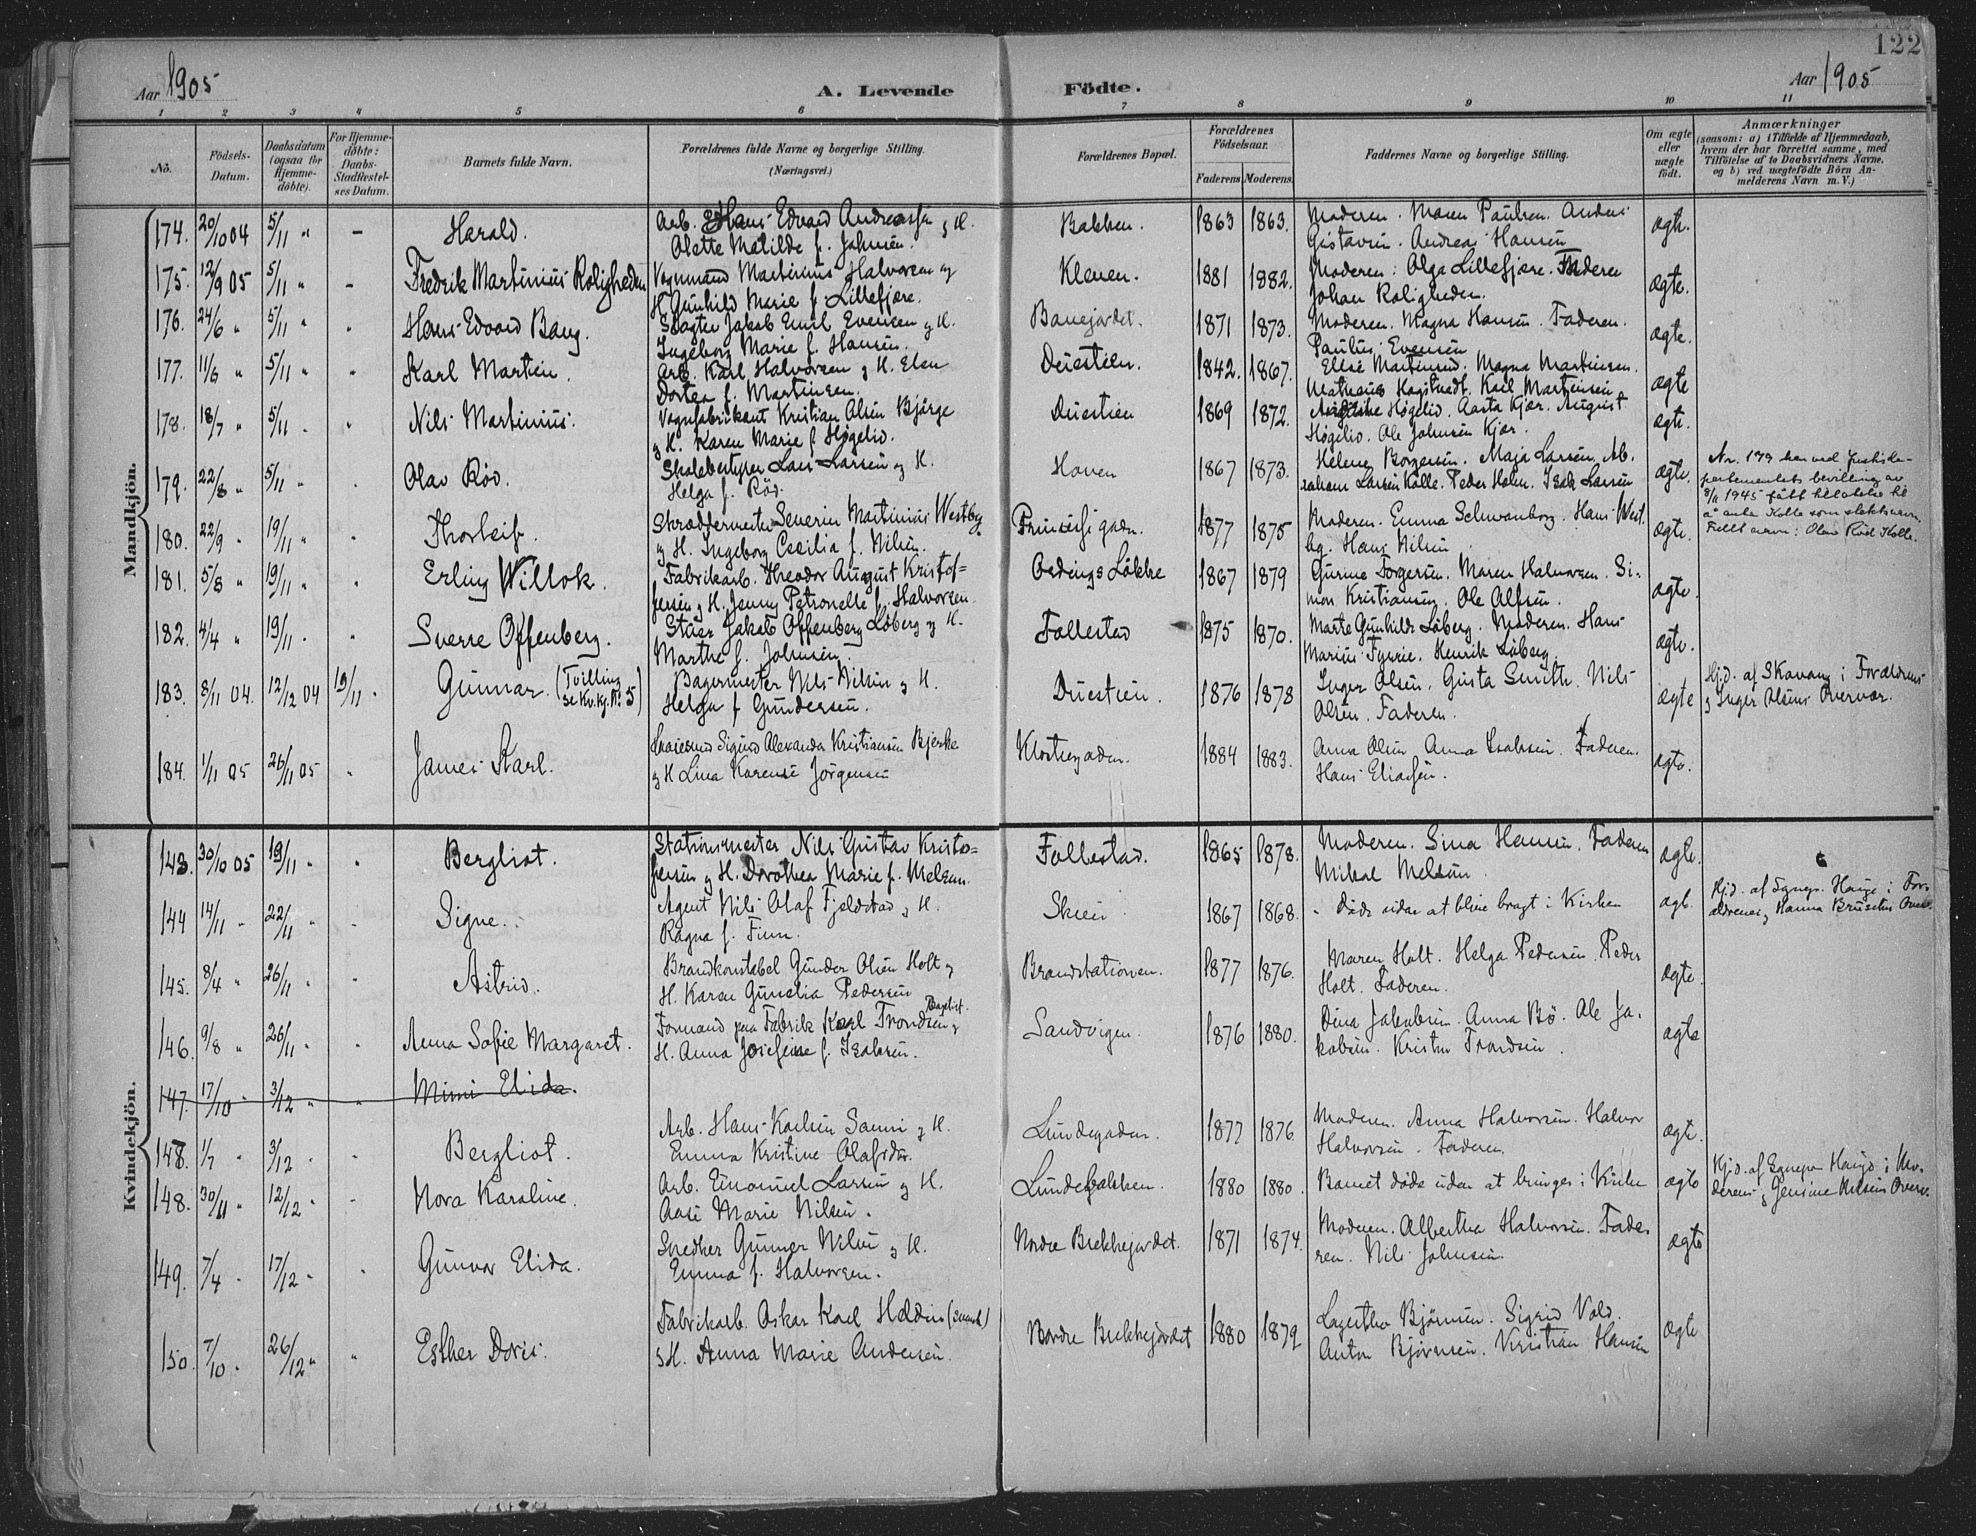 122
Aar 1905
A. Levende Födte.
Aar 1905
1 2 3 4 5 6 7 8 9 10 11
No.
Födsels-
Datum.
Daabsdatum
(ogsaa for
Hjemme-
döbte).
For Hjemme-
döbte:
Daabs-
Stadfæstel-
ses Datum.
Barnets fulde Navn.
Forældrenes fulde Navne og borgerlige Stilling.
(Næringsvei.)
Forældrenes Bopæl.
Forældrenes
Födselsaar.
Faderens. Moderens.
Faddernes Navne og borgerlige Stilling.
Om ægte
eller
uægte
födt.
Anmærkninger
(saasom: a) i Tilfælde af Hjemmedaab,
hvem der har forrettet samme, med
Tilföielse af to Daabsvidners Navne,
og b) ved uægtefödte Börn An-
melderens Navn m. V.)
Mandkjön.
174. 20/10 04 5/11 " - Harald. Arb. Hans Edvard Andreassen og H.
Olette Matilde f. Johnsen. Bakken. 1863 1863. Moderen. Maren Paulsen. Anders
Gustavsen. Andreas Hansen ægte.
175. 12/9 05 5/11 " - Fredrik Martinius Roligheden Vognmand Martinius Halvorsen og
H. Gunhild Marie f. Lillefjære. Kleven. 1881 1882. Moderen: Olga Lillefjære. Faderen
Johan Roligheden. ægte.
176. 24/6 " 5/11 " " Hans Edvard Bang. Slagter Jakob Emil Evensen og H.
Ingeborg Marie f. Hansen. Banejordet. 1871 1873. Moderen. Magna Hansen. Faderen.
Paulus Evensen ægte.
177. 11/6 " 5/11 " " Karl Martin. Arb. Karl Halvorsen og H. Elen
Dortea f. Martinsen. Duestien. 1842. 1867. Elise Martinsen. Magna Martinsen.
Karl Martinsen ægte
178. 18/7 " 5/11 . " Nils Martinius. Vognfabrikant Kristian Olsen Bjørge
og H. Karen Marie f. Høgelid. Duestien 1869 1872. Høgelid. Aasta Kjær. August
Høgelid. Ole Johnsen Kjær. ægte.
179. 22/8 " 5/11 . Olav Röd. Skolebestyrer Lars Larsen og H.
Helga f. Röd. Haven 1867 1873. Helene Borgersen. Maja Larsen. Ab-
raham Larsen Kolle. Peder Holm. Isak Larsen ægte. Nr. 179 har ved Justisde-
partementets bevilling av
8/11 1945 fått tillatelse til
å anta Kolle som slektsnavn.
Fullt navn: Olav Röd Kolle.
180. 22/9 " 19/11 " . Thorleif. Skræddermester Severin Martinius Westby
og H. Ingeborg Cecilia f. Nilsen. Prinsessegaden. 1877 1875 Moderen. Emma Schwanborg. Hans West-
by. Hans Nilsen ægte.
181. 5/8 " 19/11 " . Erling Willok. Fabrikarb. Theodor August Kristof-
fersen og H. Jenny Petronelle f. Halvorsen. Ordings Løkke 1867 1879 Gurine Torgersen. Maren Halvorsen. Si-
mon Kristiansen. Ole Olsen. ægte.
182. 4/4 " 19/11 . " Sverre Offenberg. Stuer Jakob Offenberg Löberg og H.
Marthe f. Johnsen. Follestad 1875 1870. Marte Gunhilds Löberg. Moderen. Hans
Marius Henrik Löberg ægte.
183. 8/11 04. 12/12 04 19/11 . Gunnar. (Tvilling
se Kv.kj. N: 5) Bagermester Nils Nilsen og H.
Helga f Gundersen. Duestien. 1876 1878 Inger Olsen. Gusta Smith. Nils
Olsen. Faderen. ægte Hj.d. af Skavang i Forældrenes
og Inger Olsens Overvær.
184. 1/11 05 26/11 05 " James Karl. Sigurd Alexander Kristiansen Bjerke
og H Lina Karense Jørgensen Klostergaden. 1884 1883. Anna Olsen. Anna Isaksen. Faderen.
Hans Eliasen. ægte.
Kvindekjön.
143. 30/10 05 19/11 " " Bergliot. Stationsmester Nils Gustav Kristo-
fersen og H. Dorothea Marie f. Melsen. Follestad. 1865 1878. Moderen. Sina Hansen. Faderen
Mikal Melsen. ægte.
144 14/11 " 22/11 " . Signe. Agent Nils Olaf Fjeldstad og H.
Ragna f. Finn. Skien 1867 1868. Døde uden at blive bragt i Kirken ægt. Hj.d. af Sogneps. Hauge i For-
ældrenes og Hanna Brusetns Overv.
145. 8/4 " 26/11 " . Astrid. Brandkonstabel Gunder Olsen Holt og
H. Karen Gunelia Pedersen Brandstationen. 1877 1876. Maren Holt. Helga Pedersen. Peder
Holt. Faderen. ægte.
146. 9/8 " 26/11 " . Anna Sofie Margaret. Formand paa Fabrik Karl Trondsen Baptist. og
H. Anna Josefine f. Isaksen. Sandvigen. 1876 1880. Dina Jakobsen. Anna Bö. Ole Ja-
kobsen. Kristen Trondsen. ægte
147. 17/10 " 3/12 " " Mimi Elida.
148. 1/7 " 3/12 . . Bergliot. Arb. Hans Karlsen Sanni og H.
Emma Kristine Olafsdtr. Lundegaden. 1877 1876. Moderen. Anna Halvorsen. Halvor
Halvorsen. Faderen. ægte.
148. 30/11 " 12/12 " . Nora Karoline. Arb. Emanuel Larsen og H.
Aase Marie Nilsen. Lundebakken. 1880 1880. Barnet døde uden at bringes i Kirken ægte Hj.d. af Sognepr. Hauge i Mo-
derens og Jensine Nilsens Overv.
149. 7/4 . 17/12 " . Gunvor Elida. Snedker Gunnar Nilsen og H.
Emma f. Halvorsen. Nordre Brekkejordet. 1871 1874. Moderen. Albertha Halvorsen. Fade-
ren. Nils Johnsen. ægte
150. 7/10 . 26/12 " " Esther Doris. Fabrikarb. Oskar Karl Heldin (svensk)
og H. Anna Marie Andersen. Nordre Brekkejordet 1880 1879 Lagertha Bjørnsen. Sigrid Vold
Anton Bjørnsen. Kristian Hansen ægte